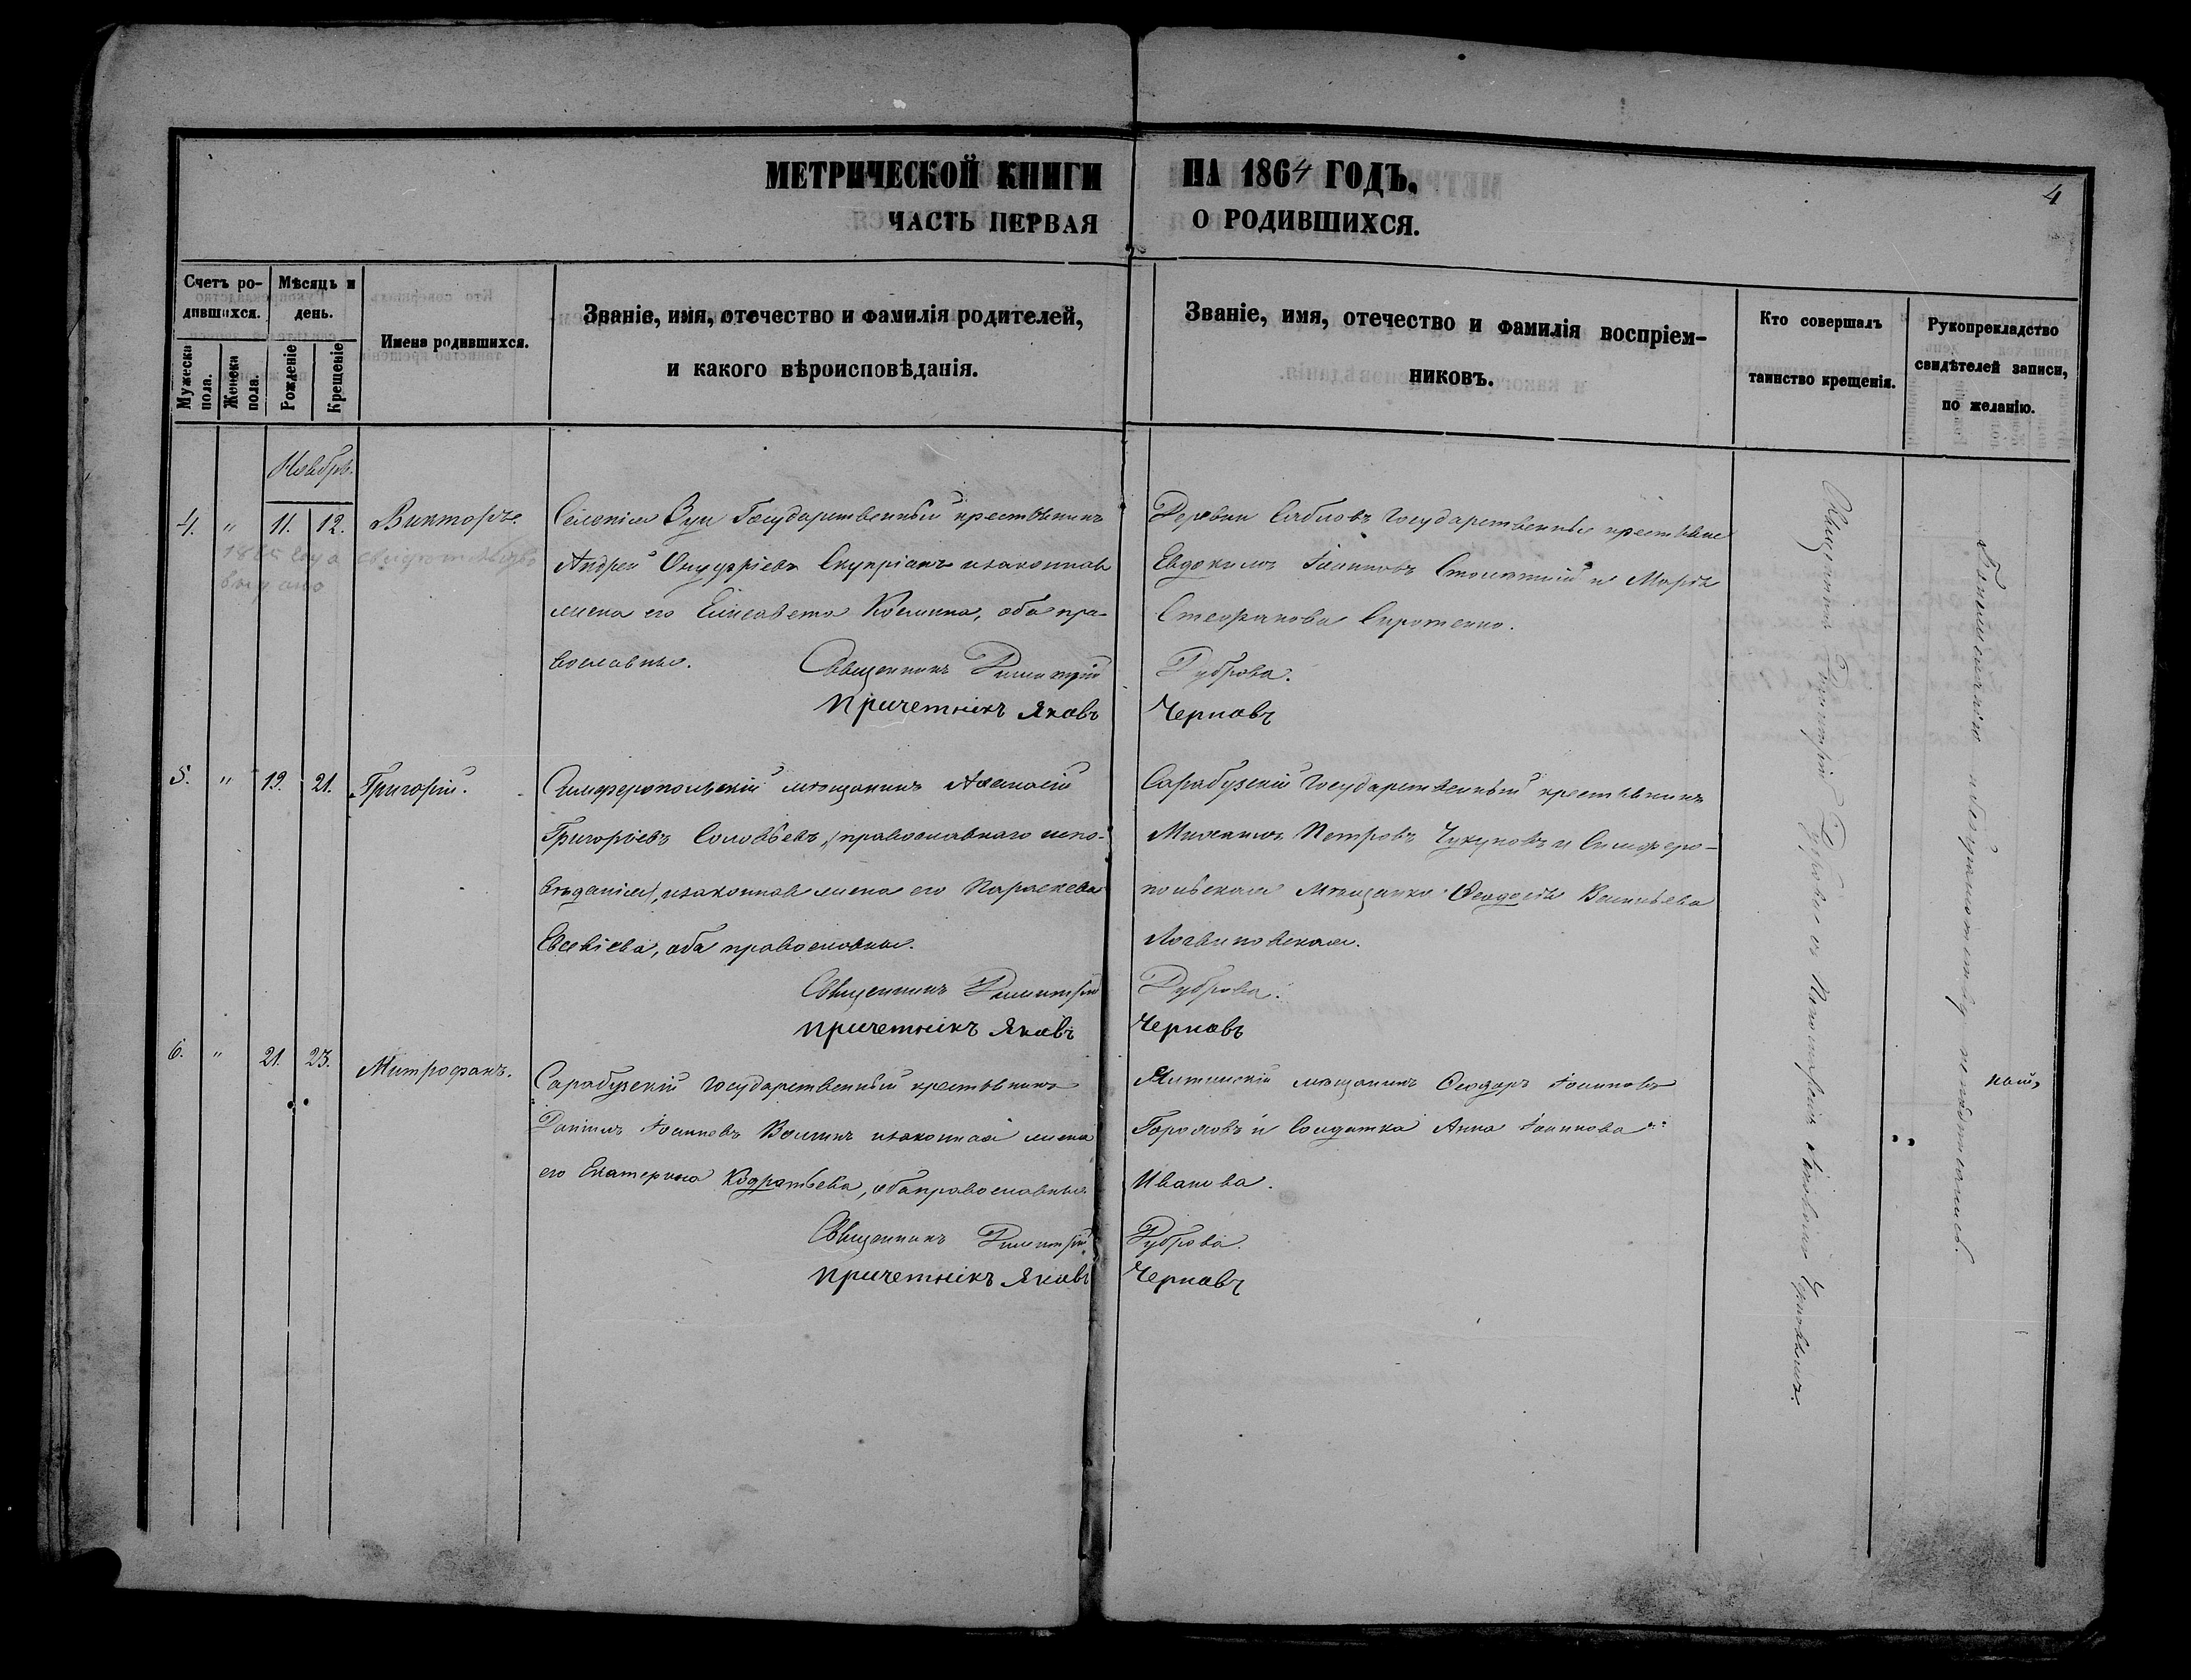 МЕТРИЧЕСКОЙ КНИГИ НА 1864 ГОДЪ,
4
ЧАСТЬ ПЕРВАЯ О РОДИВШИХСЯ.
Счетъ ро-
дившихся.
Мужеска
пола.
Женска
пола.
Мѣсяць и
день.
Рожденіе
Крещеніе
Имена родившихся.
Званіе, имя, отечество и фамилія родителей,
и какого вѣроисповѣданія.
Званіе, имя, отечество и фамилія воспріем-
никовъ.
Кто совершалъ
таинство крещенія.
Рукоприкладство
свидѣтелей записи,
по желанію.
Ноябрь.
4. " 11. 12. Викторъ.
свидѣтельство
выдано
Государственный крестьянинъ
Андрей Онуфріевъ и законная
жена его Елисавета Косьмина, оба пра-
вославные.
Священникъ Димитрій
Причетнікъ Яковъ
Деревни Сабловъ Государственные крестьяне
Евдокимъ Іоанновъ и Марѳа
Стефанова Сиротенко.
Дуброва.
Черновъ
5. " 19. 21. Григорій.
Симферопольскій мѣщанинъ Аѳанасій
Григоріевъ Соловьевъ, (православнаго испо-
вѣданія), и законная жена его Параскева
Евсевіева, оба православные.
Священникъ Димитрій
Причетнікъ Яковъ
Сарабузскій Государственный крестьянинъ
Михаилъ Петровъ Чукуновъ и Симферо-
польская мѣщанка Ѳеодосія Васильева
Дуброва.
Черновъ
6. " 21. 23. Митрофанъ.
Сарабузскій Государственный крестьянинъ
Даніилъ Іоанновъ и законная жена
его Екатерина Кодратьева, оба православные.
Священникъ Димитрій
Причетнікъ Яковъ
Ялтинскій мѣщанинъ Ѳеодоръ Іоанновъ
и солдатка Анна Іоаннова
Иванова.
Дуброва.
Черновъ
Священникъ Димитрій Дуброва съ Яковомъ Черновымъ.